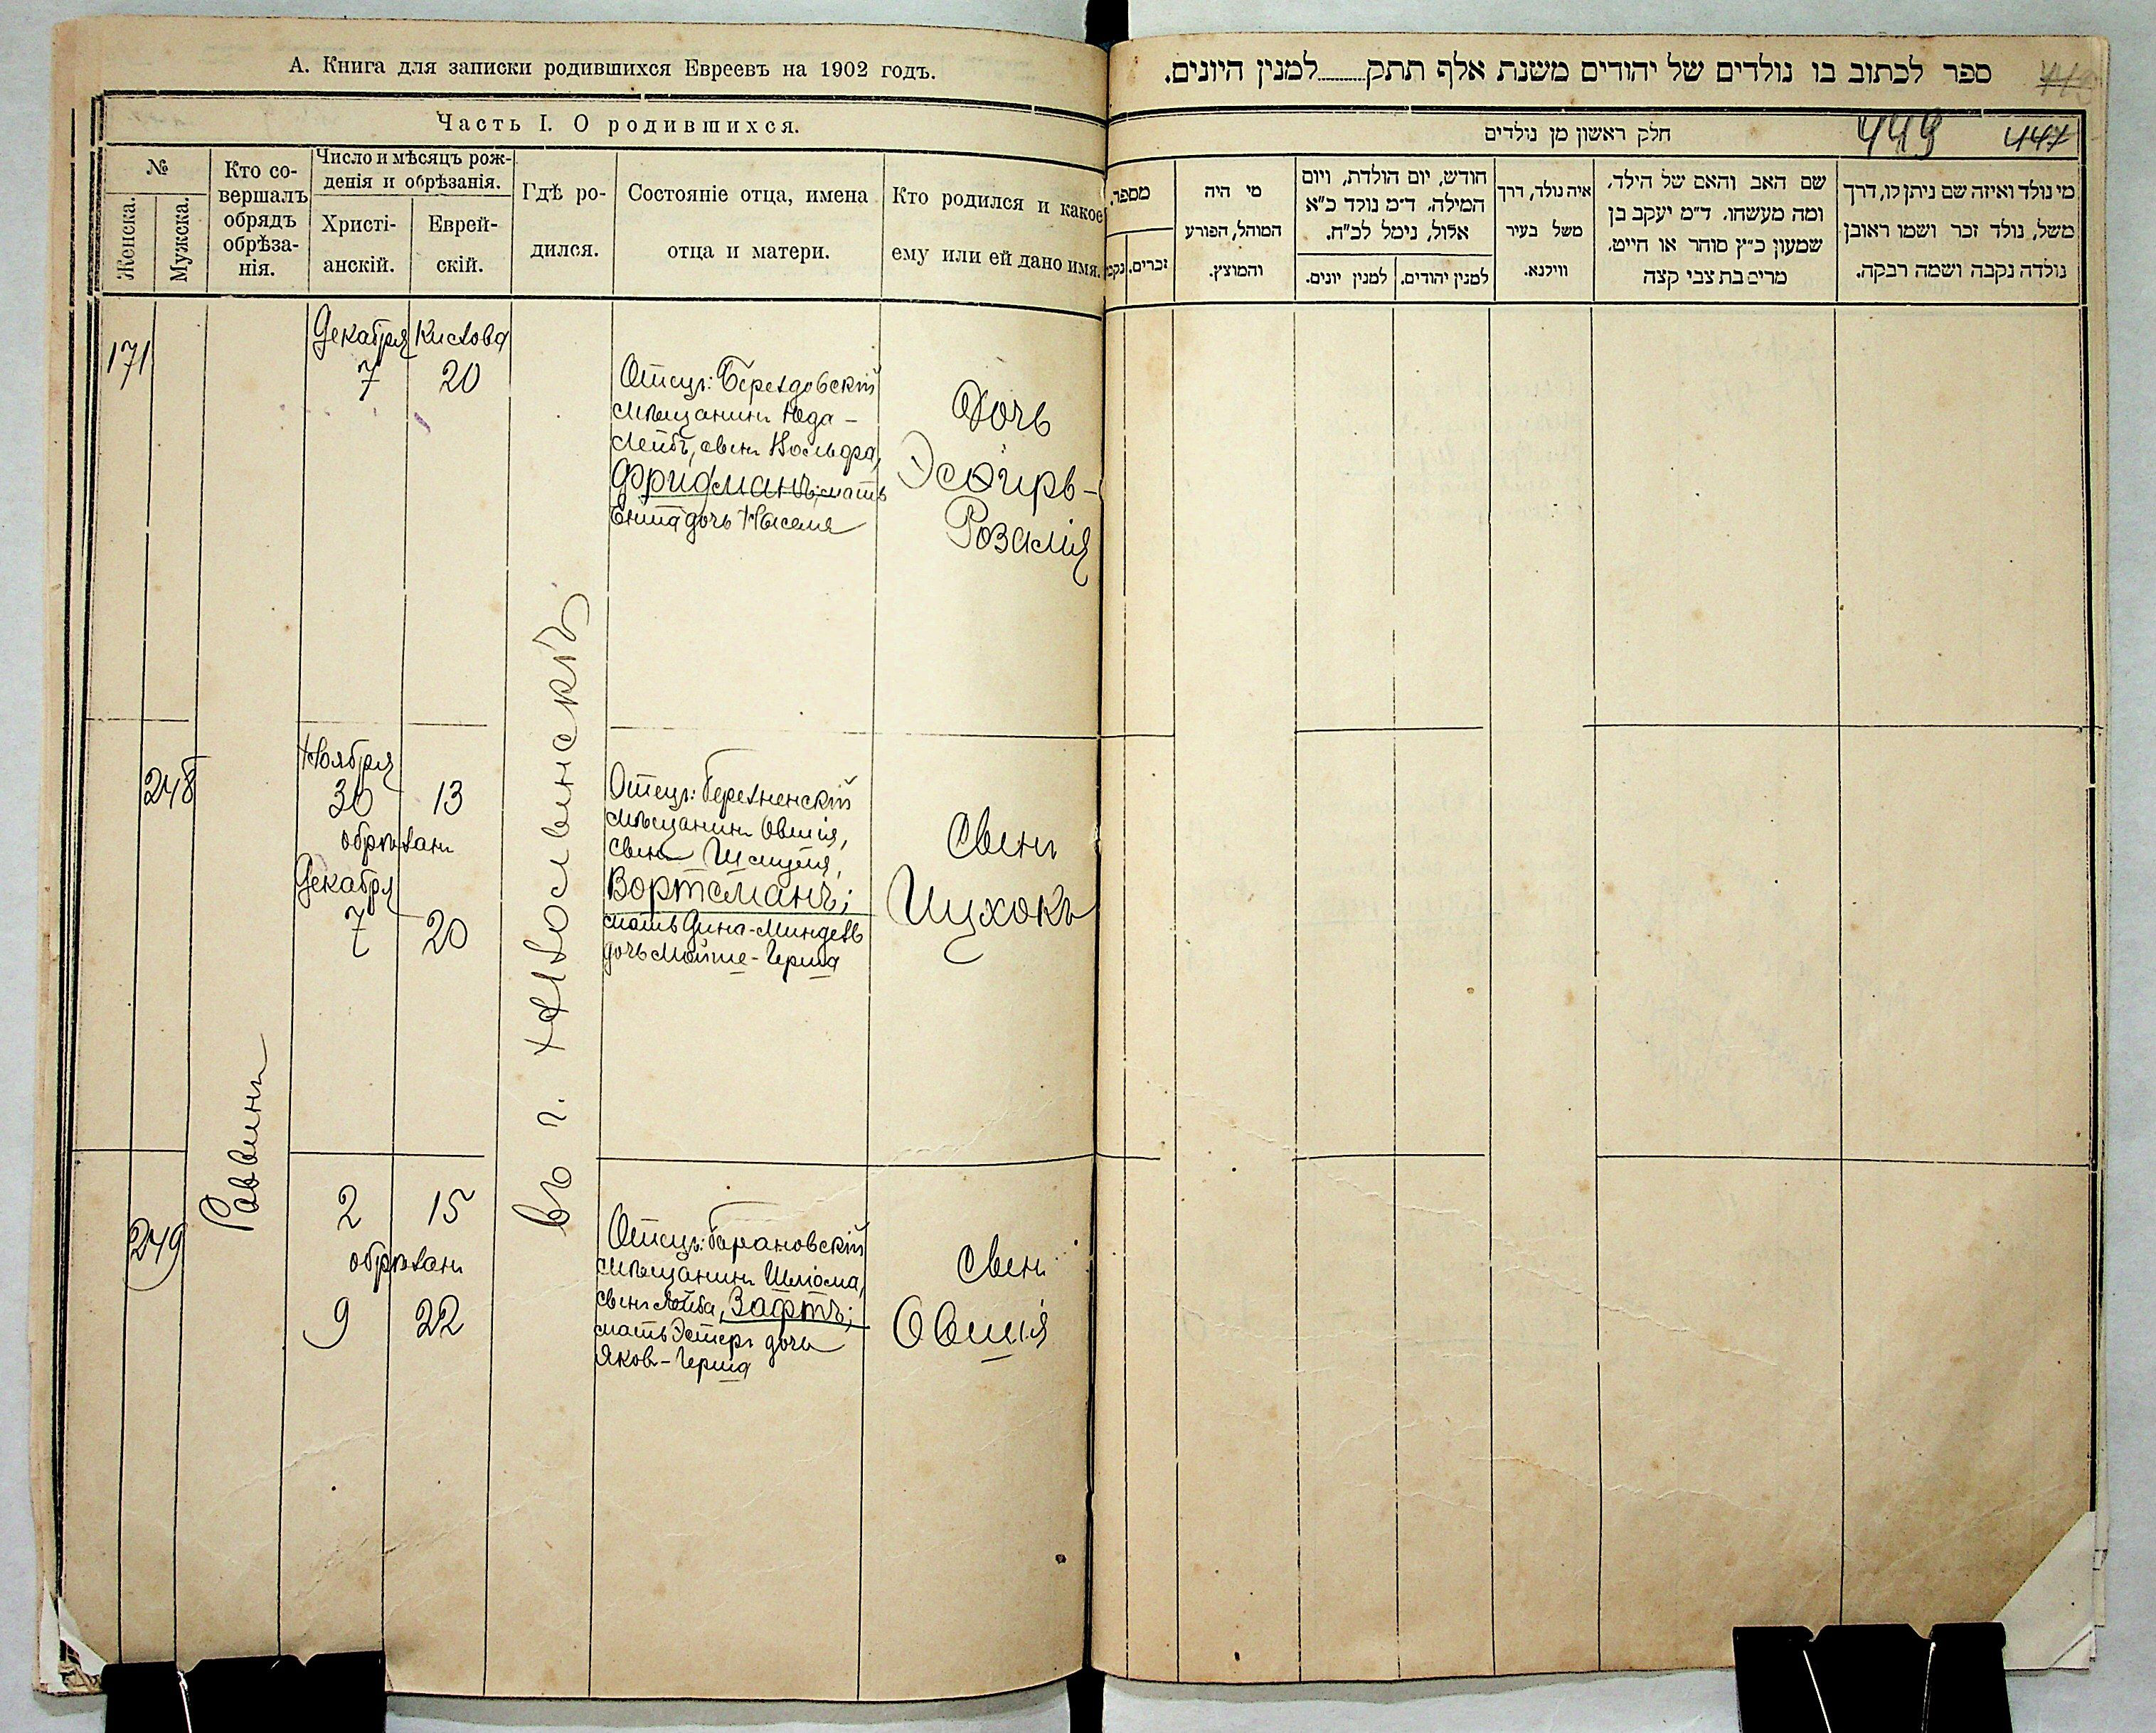 А. Книга для записки родившихся Евреевъ на 1902 годъ.
Часть I. О родившихся.
№
Женска.
Мужска.
Кто со-
вершалъ
обрядъ
обрѣза-
нія.
Число и мѣсяцъ рож-
денія и обрѣзанія.
Христі-
анскій.
Еврей-
скій.
Гдѣ ро-
дился.
Состояніе отца, имена
отца и матери.
Кто родился и какое
ему или ей дано имя.
171
Декабря Кислова
7 20
Отецъ: Березdовскій
мѣщанинъ Юда-
Лейбъ, сынъ Вольфа,
Фридманъ; мать
Ента дочь
Дочь
Эсѳирь-
Розалія
въ г.
Раввинъ
248
Ноября
30 13
обрѣзанъ
Декабря
7 20
Отецъ: Березненскій
мѣщанинъ Овшія,
сынъ
Вортсманъ;
мать Дина-Миндель
дочь Мойше-Герша
Сынъ
Ицхокъ
249
2 15
обрѣзанъ
9 22
Отецъ: Барановскій
мѣщанинъ Шліома,
сынъ Лейба, Зафтъ;
мать Эстеръ дочь
Яков-Герша
Сынъ
Овшія
ספר לכתוב בו נולדים של יהודים משנת אלף תתק......למנין היונים.
חלק ראשון מן נולדים
449 447
מספר.
זכרים.
מי היה
המוהל, הפורע
והמוצץ.
חודש, יום הולדת, ויום
המילה. ד״מ נולד כ״א
אלול, נימל לכ״ח.
למנין יהודים.
למנין יונים.
איה נולד, דרך
משל בעיר
ווילנא.
שם האב והאם של הילד,
ומה מעשהו. ד״מ יעקב בן
שמעון כ״ץ סוהר או חייט.
מרים בת צבי קצה
מי נולד ואיזה שם ניתן לו, דרך
משל, נולד זכר ושמו ראובן
נולדה נקבה ושמה רבקה.